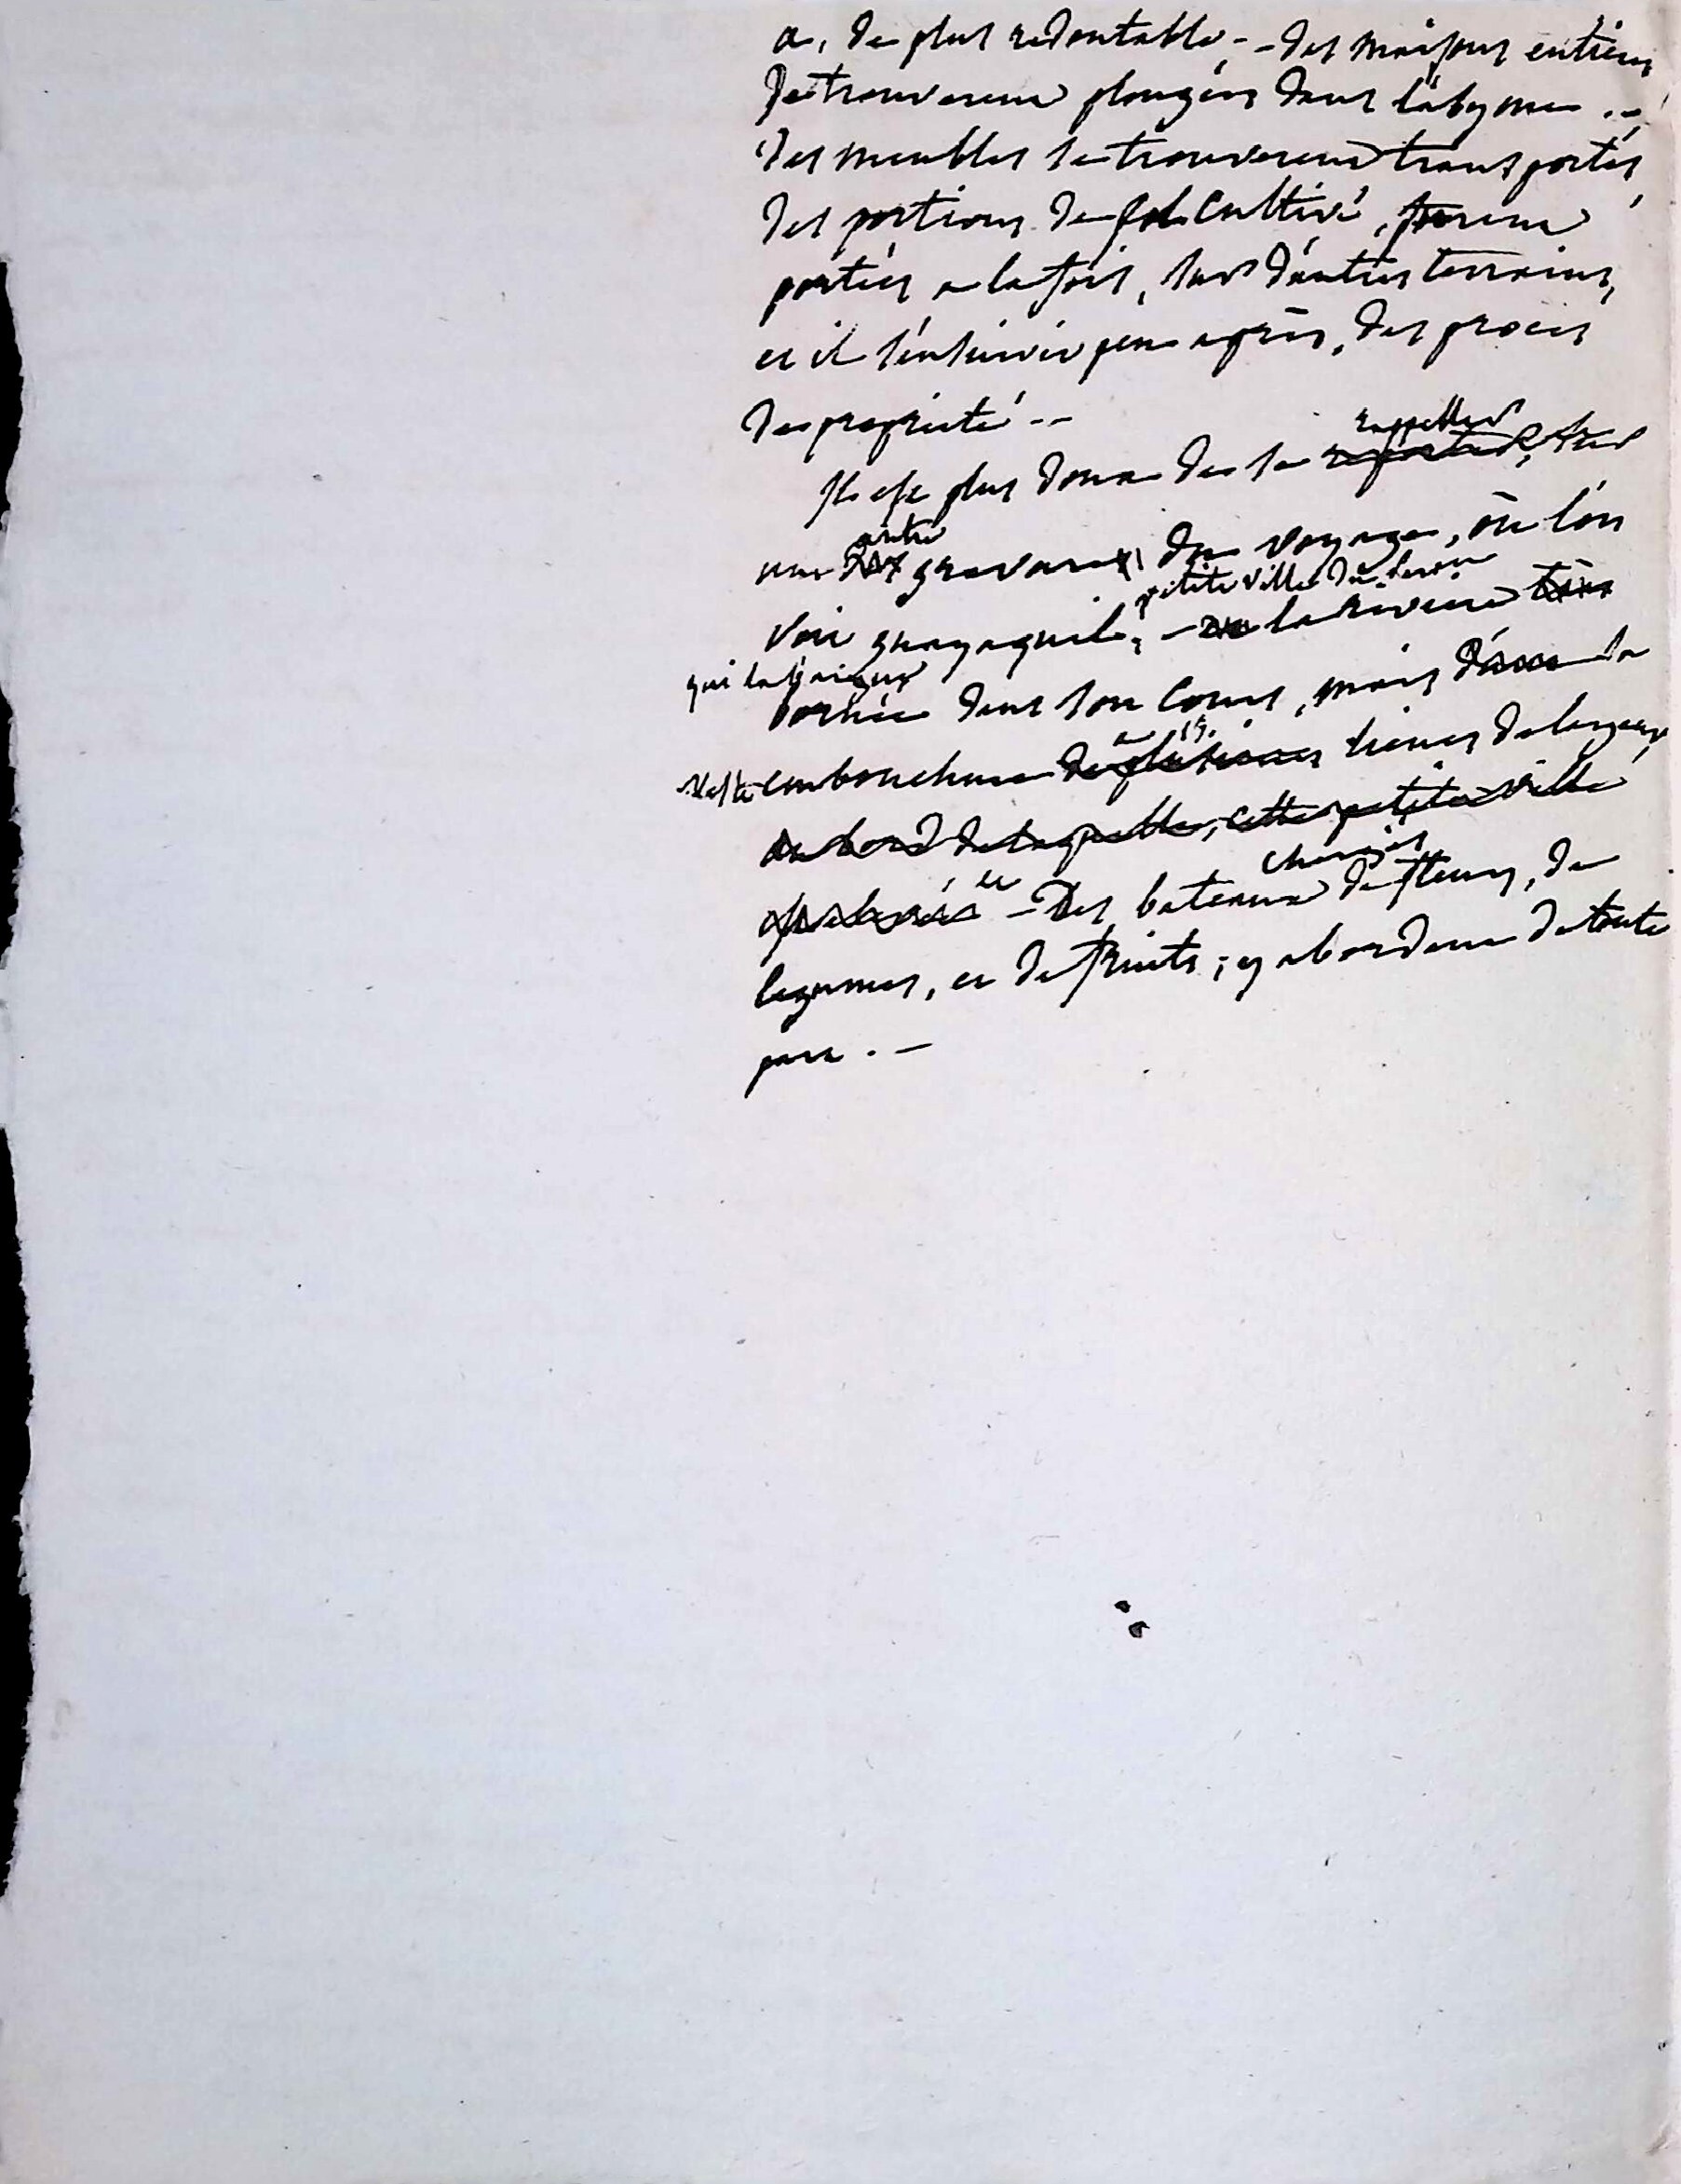 a, de plus redoutable, -- des maisons entieres
se trouverent plongées dans l'abyme --
des meubles se trouverent transportés,
des portions de sol cultivé, furent
portées a la fois, sur d'autres terrains,
et il s'ensuivit peu après, des procès
de proprieté --
rappeller
Il est plus doux de se reporter, sur
autre
une gravure du voyage, où l'on
petite ville du perou
voit guayaquil, - la riviere
qui la baigne
bornée dans son cours, mais la
a 15.
vaste embouchure de plusieurs lieues de largeur,
au bord de laquelle, cette petite ville
et chargés
- Des bateaux de fleurs, de
legumes, et de fruits, y abordent de toute
part. -